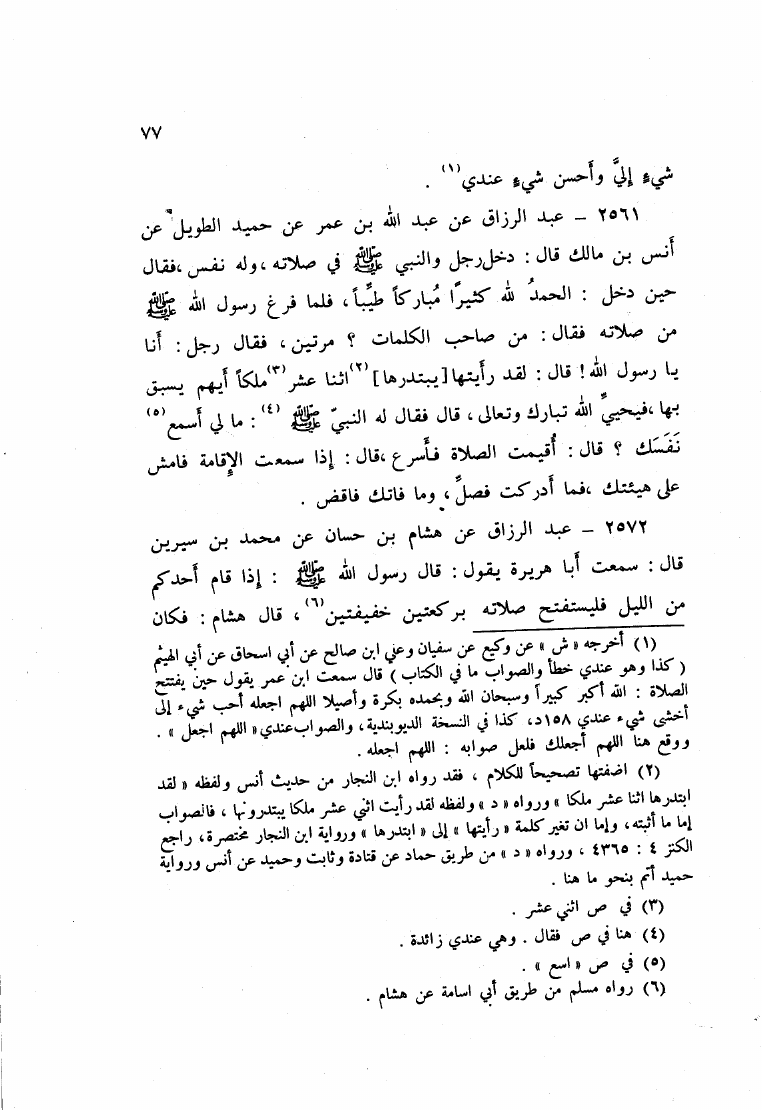 ٧٧
شيءٍ إليَّ وأحسن شيءٍ عندي(١) .
٢٥٦١ – عبد الرزاق عن عبد الله بن عمر عن حميد الطويل عن
أنس بن مالك قال : دخل رجل والنبي ﷺ في صلاته ، وله نفس ، فقال
حين دخل : الحمدُ لله كثيرًا مُباركاً طيِّباً ، فلما فرغ رسول الله ﷺ
من صلاته فقال : من صاحب الكلمات ؟ مرتين ، فقال رجل : أنا
يا رسول الله ! قال : لقد رأيتها [يبتدرها](٢) اثنا عشر(٣) ملكاً أيهم يسبق
بها ، فيحييِّ الله تبارك وتعالى ، قال فقال له النبيّ ﷺ (٤) : ما لي أسمع(٥)
نَفَسَك ؟ قال : أُقيمت الصلاة فأسرع ، قال : إذا سمعت الإقامة فامش
على هيئتك ، فما أدركت فصلِّ ، وما فاتك فاقض .
٢٥٧٢ – عبد الرزاق عن هشام بن حسان عن محمد بن سيرين
قال : سمعت أبا هريرة يقول : قال رسول الله ﷺ : إذا قام أحدكم
من الليل فليستفتح صلاته بركعتين خفيفتين(٦) ، قال هشام : فكان
(١) أخرجه « ش » عن وكيع عن سفيان وعني ابن صالح عن أبي اسحاق عن أبي الهيثم
( كذا وهو عندي خطأ والصواب ما في الكتاب ) قال سمعت ابن عمر يقول حين يفتتح
الصلاة : الله أكبر كبيراً وسبحان الله وبحمده بكرة وأصيلا اللهم اجعله أحب شيء إلى
أخشى شيء عندي ١٥٨د، كذا في النسخة الديوبندية ، والصواب عندي « اللهم اجعل » .
ووقع هنا اللهم أجعلك فلعل صوابه : اللهم اجعله .
(٢) اضفتها تصحيحاً للكلام ، فقد رواه ابن النجار من حديث أنس ولفظه « لقد
ابتدرها اثنا عشر ملكا » ورواه « د » ولفظه لقد رأيت اثني عشر ملكا يبتدرونها ، فالصواب
إما ما أثبته ، وإما ان تغير كلمة « رأيتها » إلى « ابتدرها » ورواية ابن النجار مختصرة ، راجع
الكنز ٤ : ٤٣٦٥ ، ورواه « د » من طريق حماد عن قتادة وثابت وحميد عن أنس ورواية
حميد أتم بنحو ما هنا .
(٣) في ص اثني عشر .
(٤) هنا في ص فقال . وهي عندي زائدة .
(٥) في ص « اسع » .
(٦) رواه مسلم من طريق أبي اسامة عن هشام .